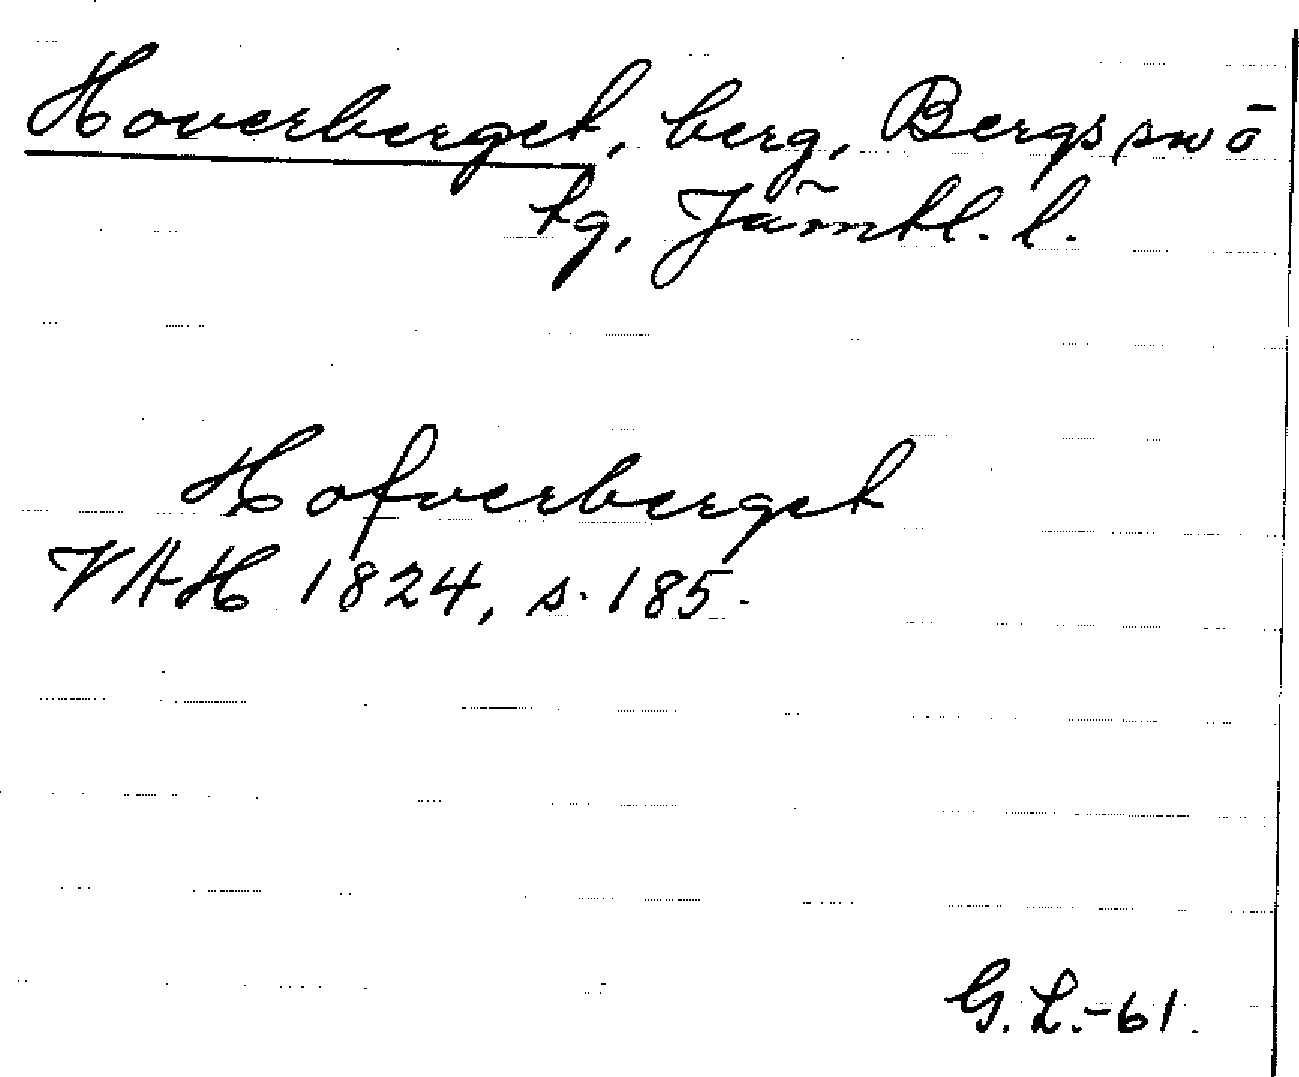 Hoverberget, berg, Bergs snö
tg, Jämtl. l.
Hofverberget
VAH 1824, s. 185.
G. L. -61.